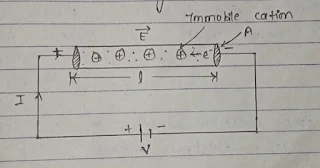 Immobile cation
E
A
+ ⊕ ⊕ ⊕ ⊕ ← e⁻ −
l
I
+ −
V